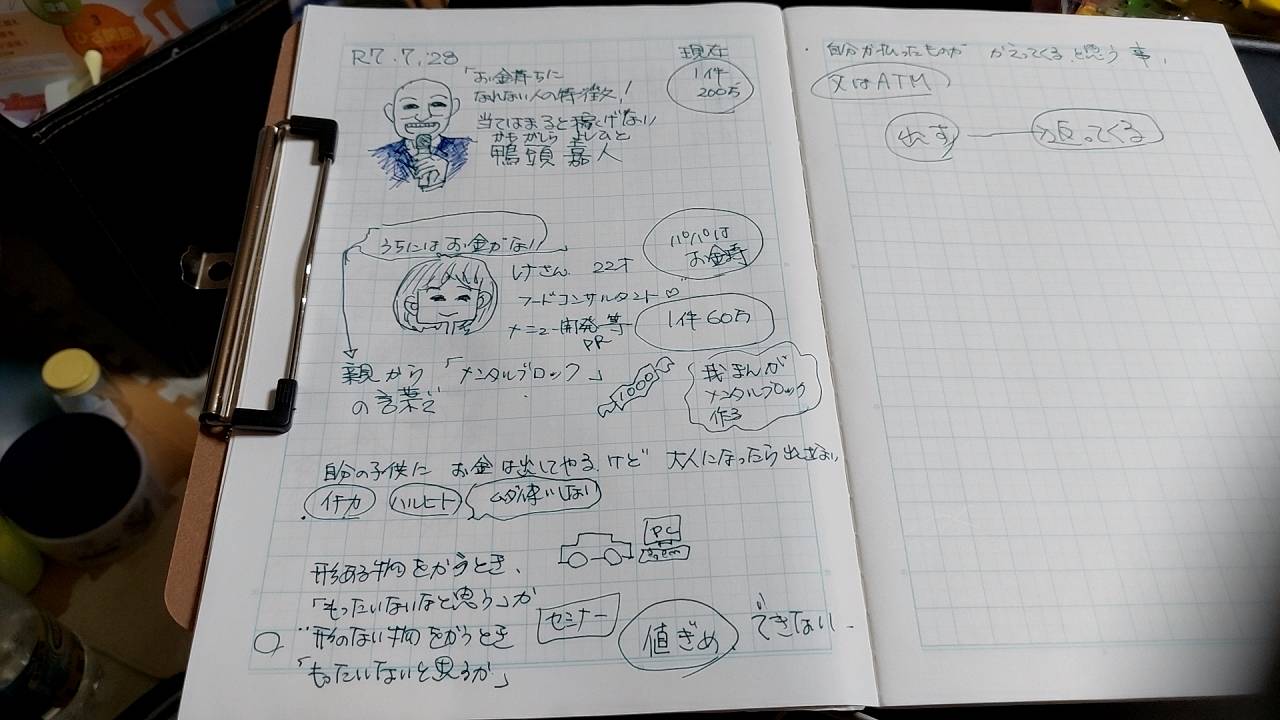 R7.7.28
「お金持ちに
なれない人の特徴」
当てはまると稼げない
かもがしら よしひと
鴨頭 嘉人
現在
1件
200万
うちにはお金がない
22才
フードコンサルタント
メニュー開発 等
PR
パパは
お金持
1件60万
親から「メンタルブロック」
の言葉で
1000
我まんが
メンタルブロック
作る
自分の子供に お金は出してやるけど 大人になったら出さない
イチカ
ハルヒト
ムダ使いしない
PC
形ある物をかうとき、
「もったいないなと思う」が
形のない物をかうとき
「もったいないと思うか」
セミナー
値ぎめ
できない
・自分が払ったものが かえってくると思う事、
又はATM
出す
返ってくる